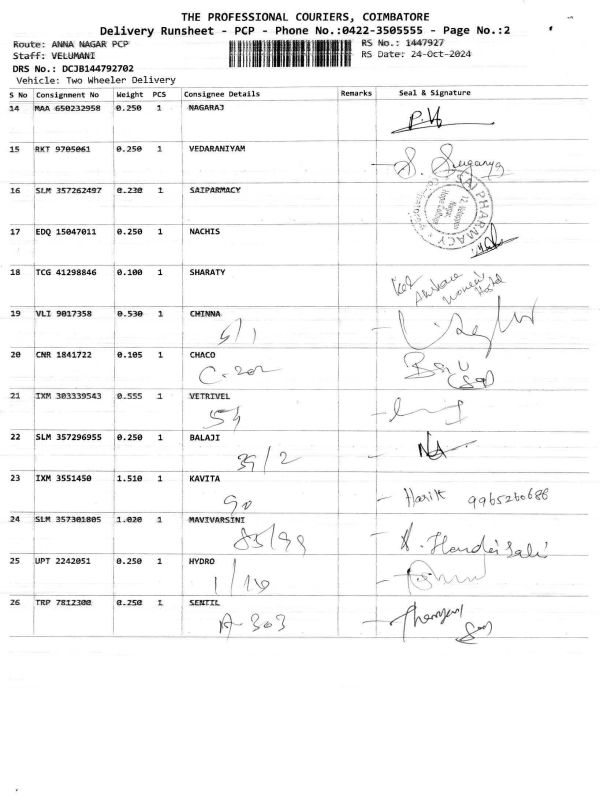 THE PROFESSIONAL COURIERS, COIMBATORE
Delivery Runsheet - PCP - Phone No.:0422-3505555 - Page No.:2
Route: ANNA NAGAR PCP RS No.: 1447927
Staff: VELUMANI RS Date: 24-Oct-2024
DRS No.: DCJB144792702
Vehicle: Two Wheeler Delivery
S No Consignment No Weight PCS Consignee Details Remarks Seal & Signature
14 MAA 650232958 0.250 1 NAGARAJ
15 RKT 9705061 0.250 1 VEDARANIYAM
S. Suganya
16 SLM 357262497 0.230 1 SAIPARMACY
SAI PHARMACY
17 EDQ 15047011 0.250 1 NACHIS
18 TCG 41298846 0.100 1 SHARATY
Women's
Hostel
19 VLI 9017358 0.530 1 CHINNA
5/1
20 CNR 1841722 0.105 1 CHACO
C-202
21 IXM 303339543 0.555 1 VETRIVEL
54
22 SLM 357296955 0.250 1 BALAJI
39/2
23 IXM 3551450 1.510 1 KAVITA
90 - Harik 9965260686
24 SLM 357301805 1.020 1 MAVIVARSINI
85/99
25 UPT 2242051 0.250 1 HYDRO
26 TRP 7812300 0.250 1 SENTIL
A-303